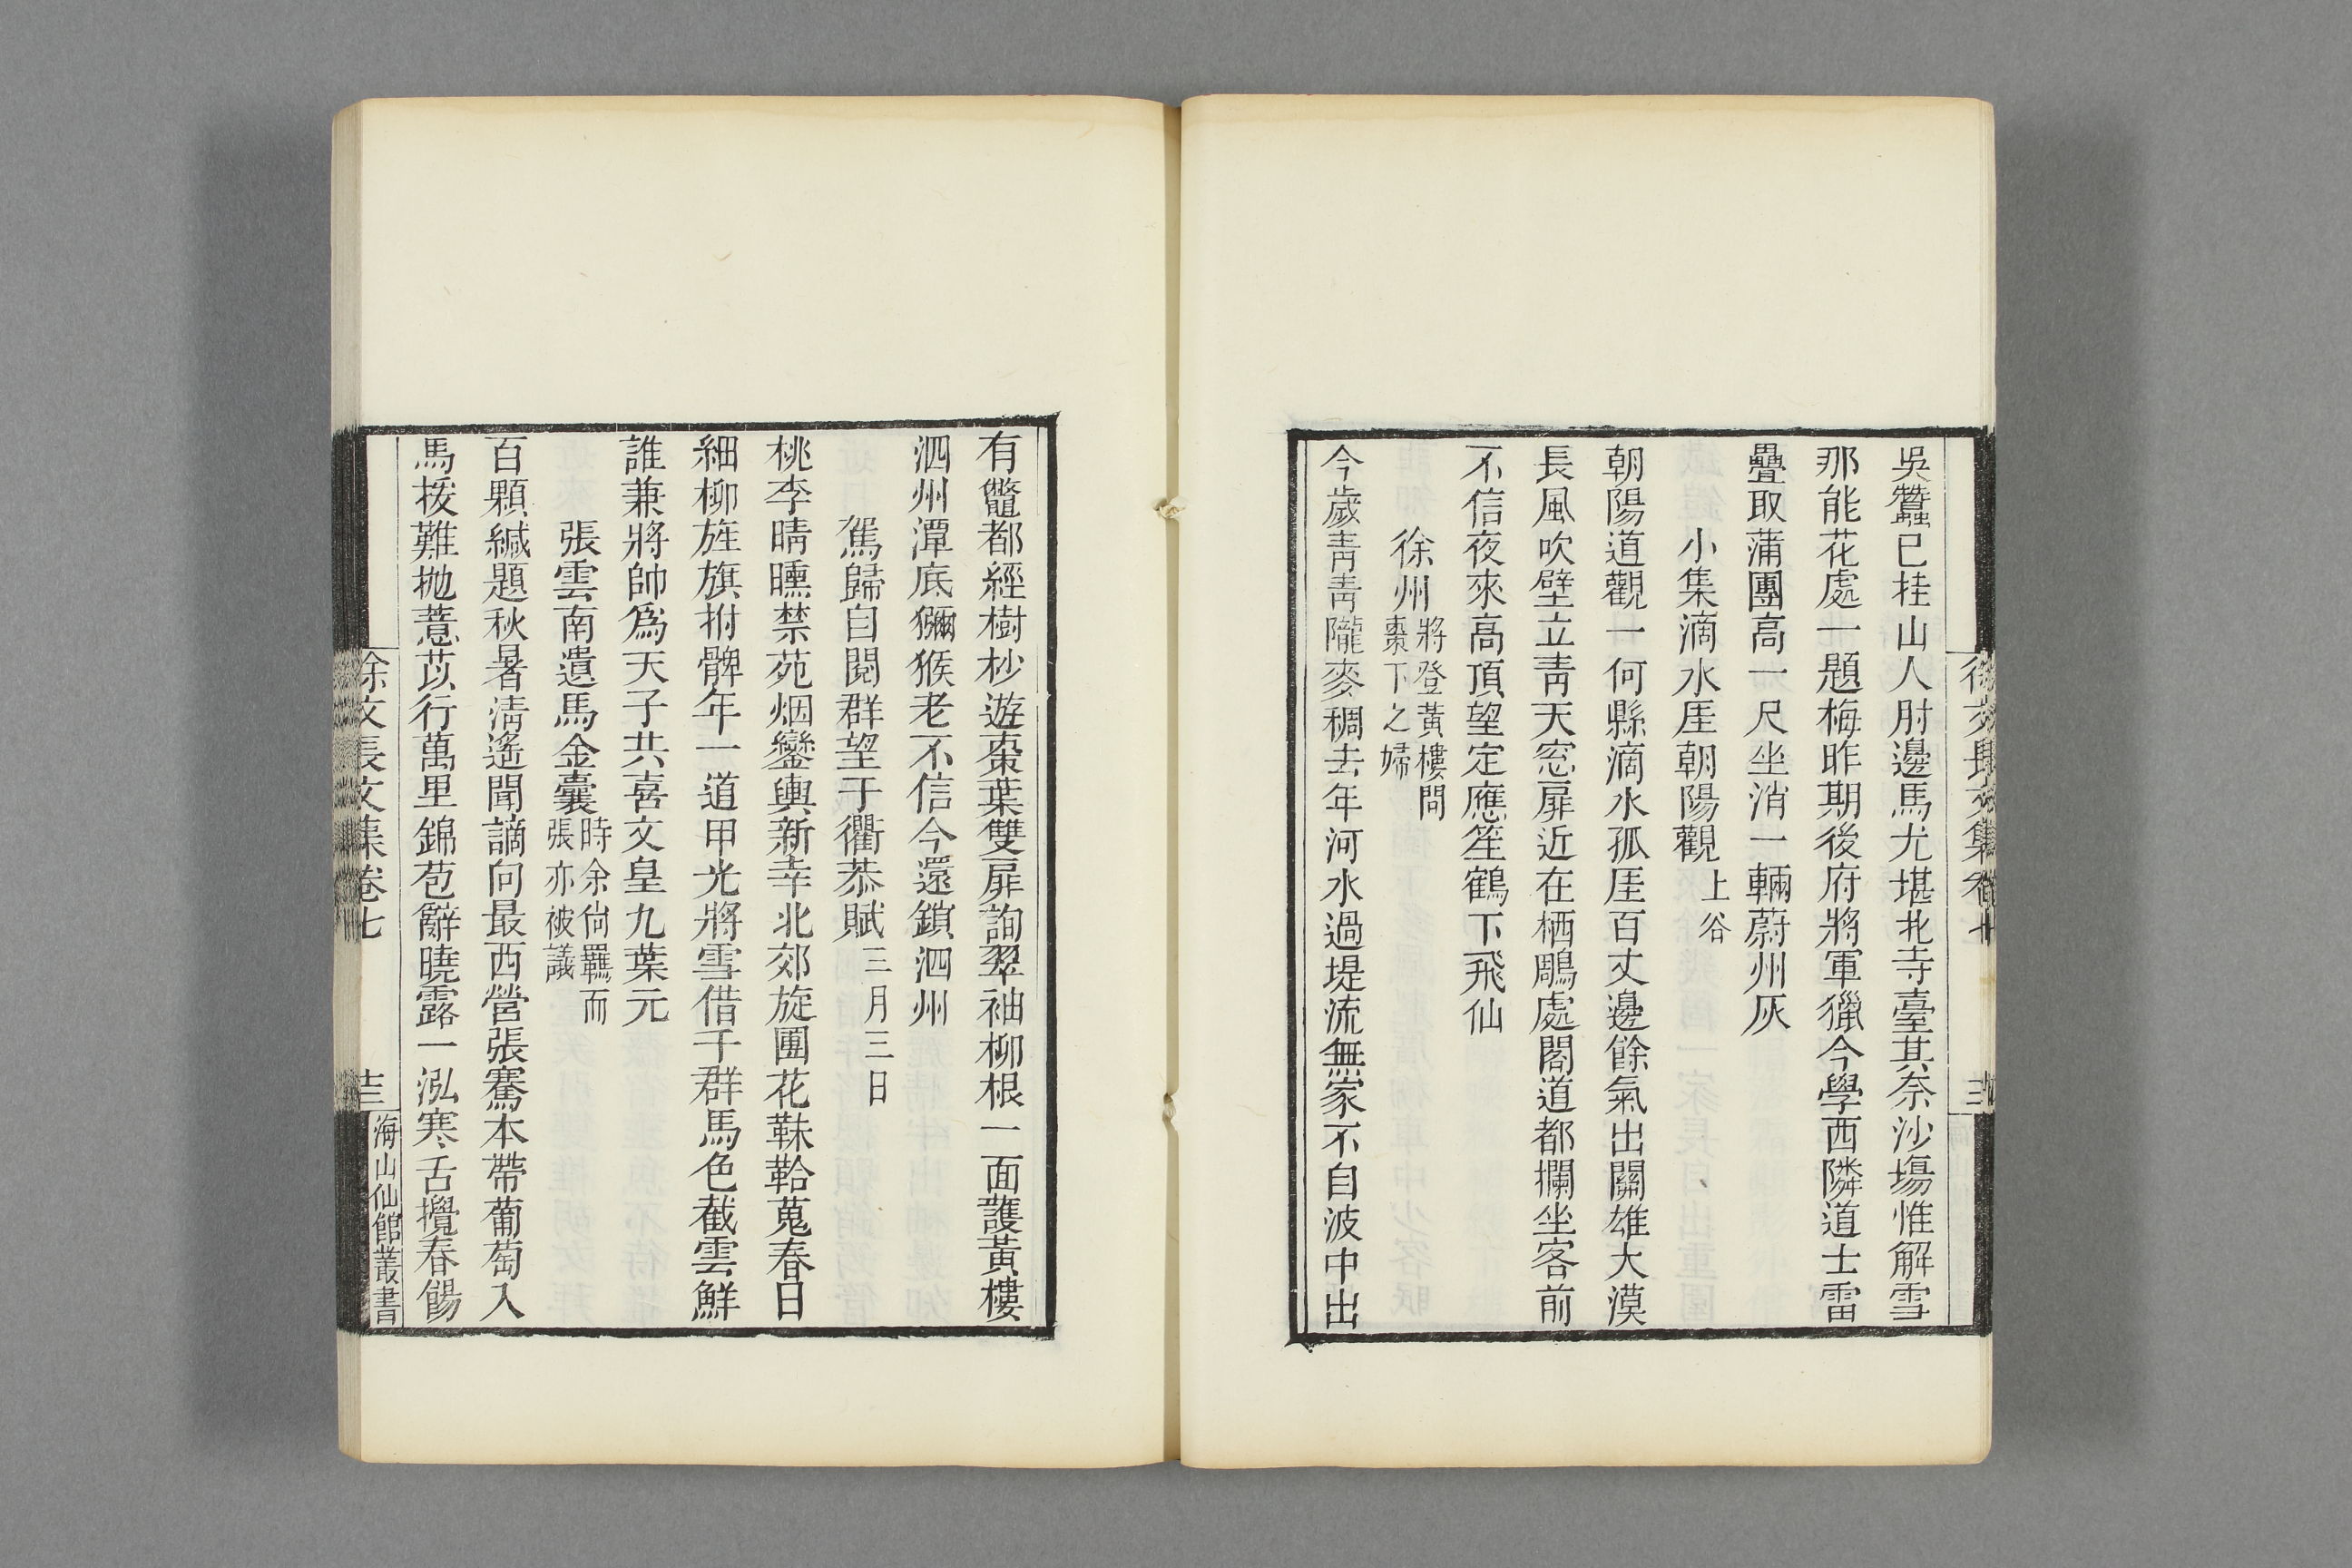 吳蠶已桂山人肘邊馬尤堪北寺臺其奈沙塲惟解雪
那能花處一題梅昨期後府將軍獵今學西隣道士雷
疊取蒲團高一尺坐消一輛蔚州灰
小集滴水厓朝陽觀上谷
朝陽道觀一何縣滴水孤厓百丈邊餘氣出關雄大漠
長風吹壁立靑天窓扉近在栖鵰處閣道都攔坐客前
不信夜來高頂望定應笙鶴下飛仙
徐州將登黃樓問棗下之婦
今歲靑靑隴麥稠去年河水過堤流無家不自波中出
有鼈都經樹杪遊棗葉雙扉詢翠袖柳根一面護黃樓
泗州潭底獼猴老不信今還鎖泗州
駕歸自閱群望于衢恭賦三月三日
桃李晴曛禁苑烟鑾輿新幸北郊旋團花靺鞈蒐春日
細柳旌旗拊髀年一道甲光將雪借千群馬色截雲鮮
誰兼將帥爲天子共喜文皇九葉元
張雲南遺馬金囊時余尙羈而張亦被議
百顆緘題秋暑淸遙聞謫向最西營張騫本帶葡萄入
馬援難抛薏苡行萬里錦苞辭曉露一泓寒舌攪春餳
徐文長文集卷七
三
海山仙館叢書